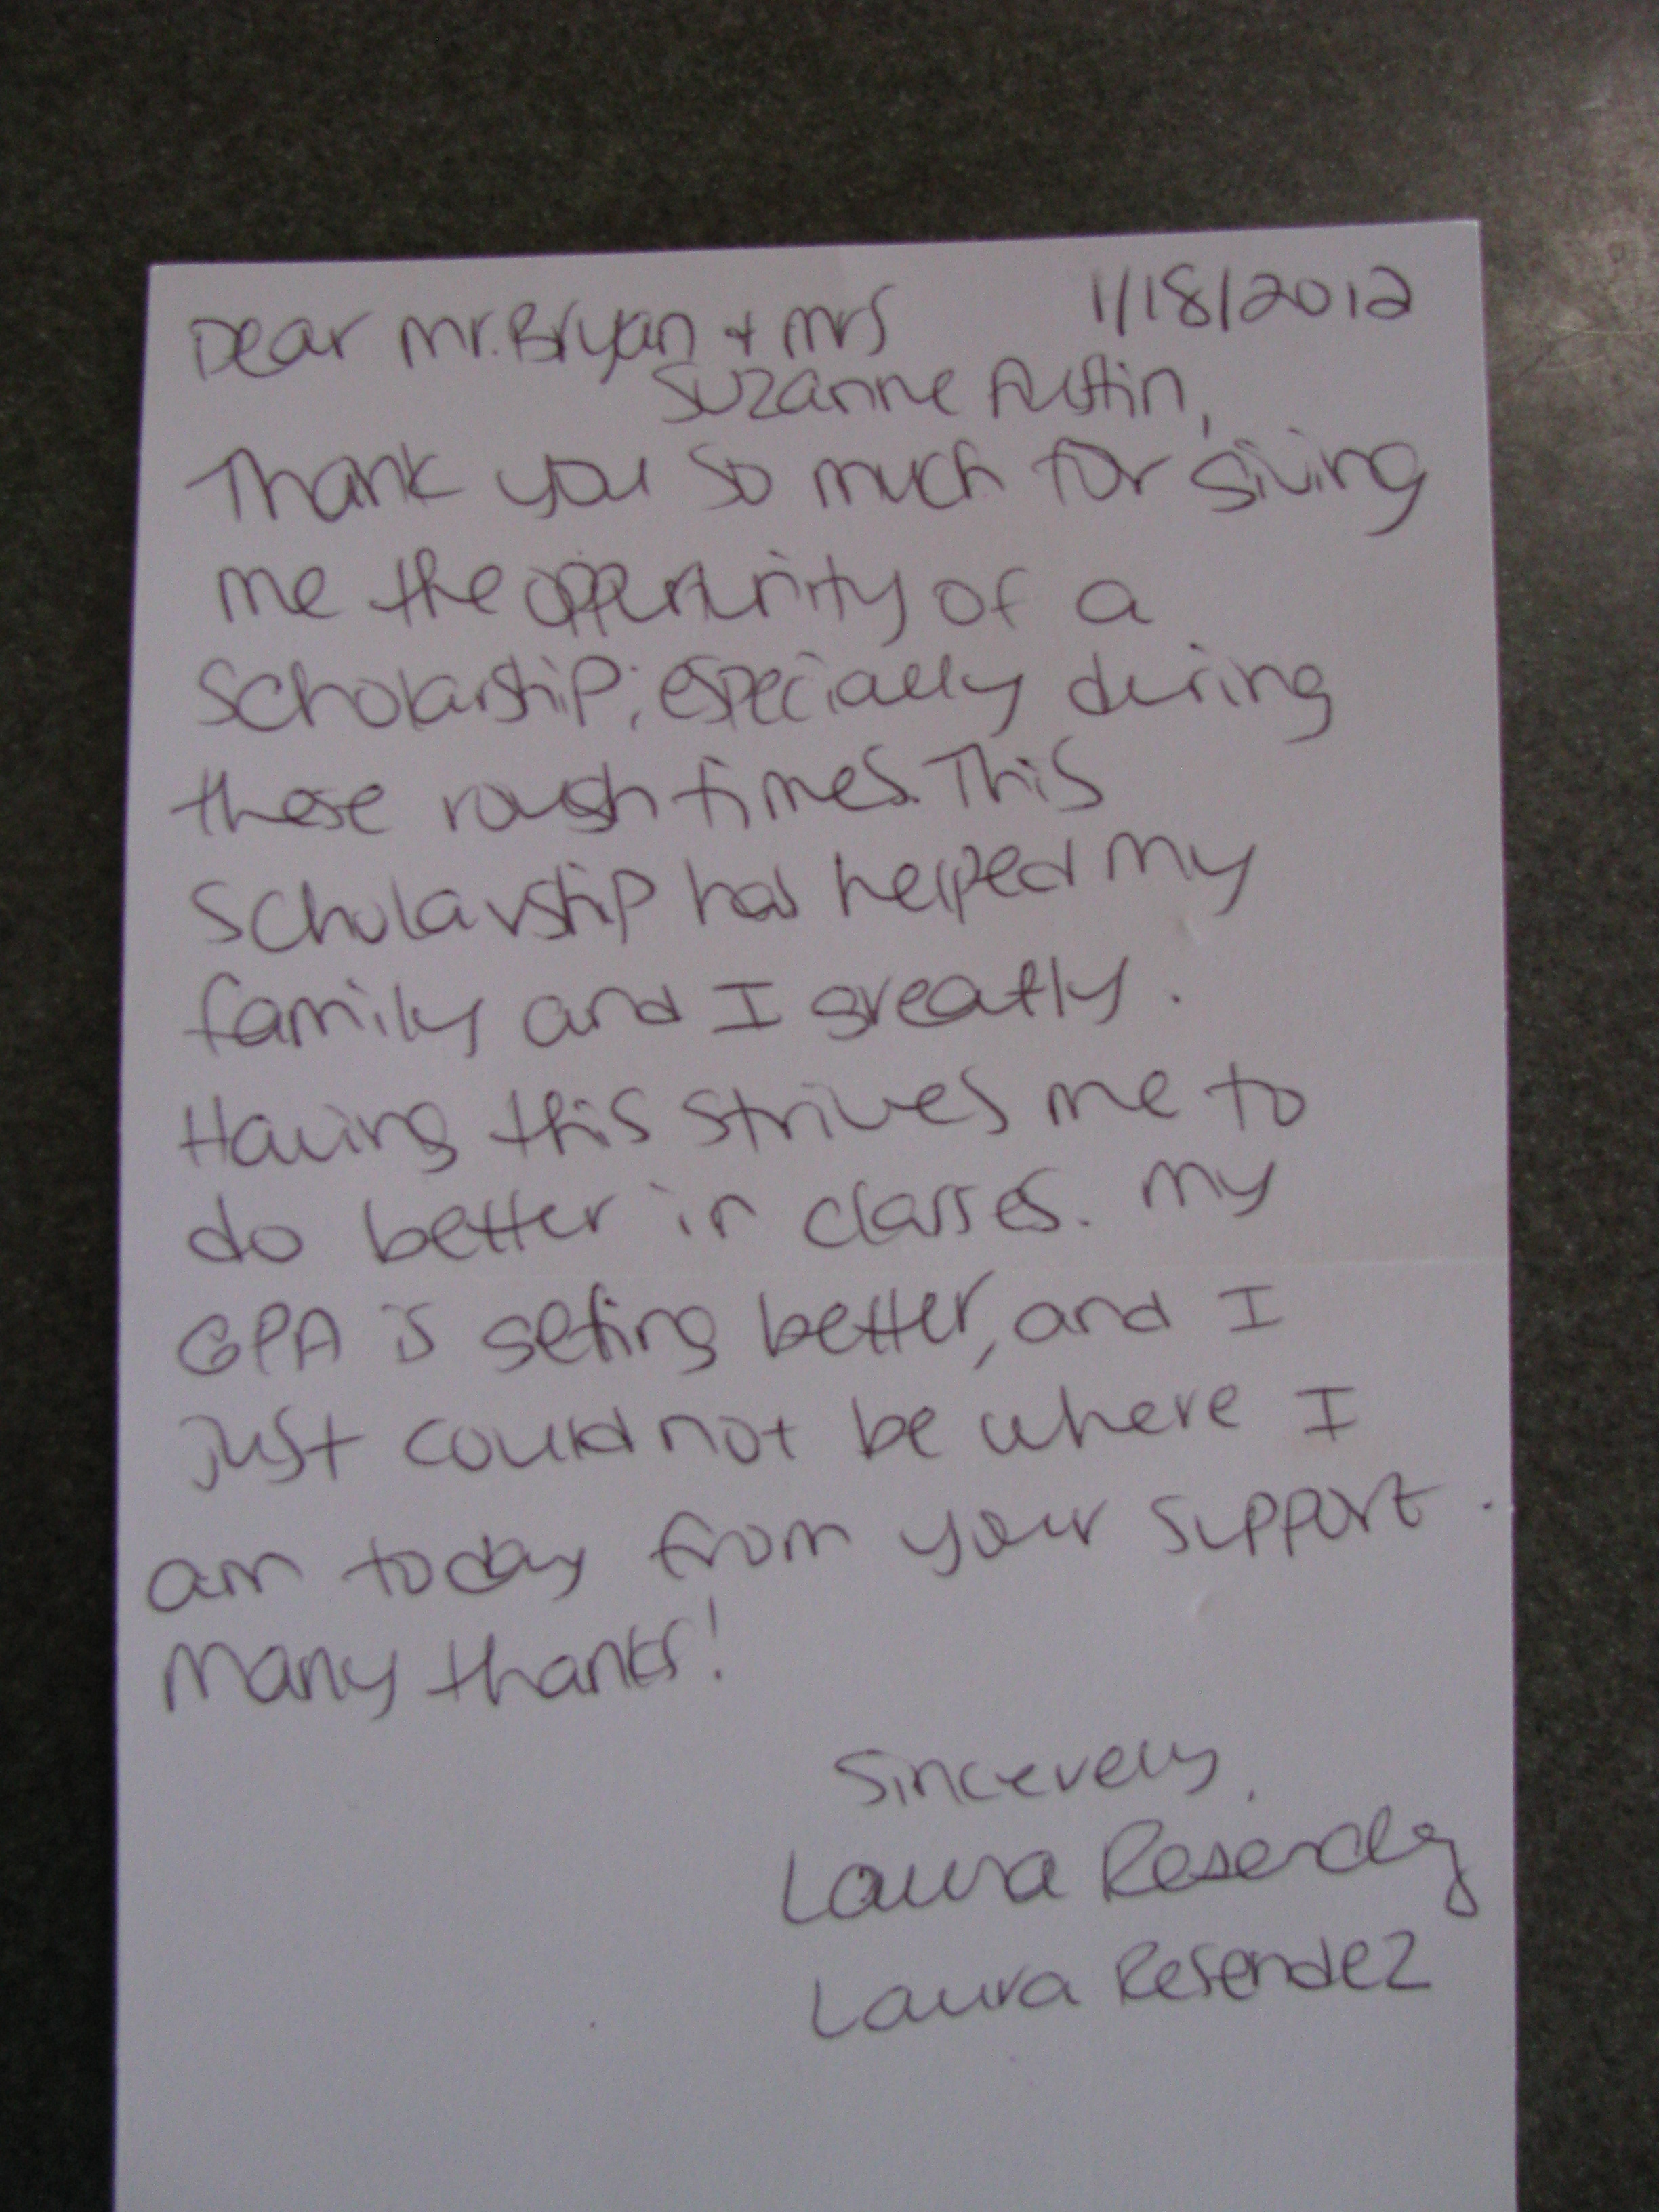 1/18/2012
Dear Mr. Bryan + Mrs
Suzanne Austin,
Thank you so much for giving
me the oppertunity of a
scholarship; especially during
these rough times. This
scholarship has helped my
family and I greatly.
Having this strives me to
do better in classes. My
GPA is geting better, and I
just could not be where I
am today from your support.
Many thanks!
Sincerely,
Laura Resendez
Laura Resendez